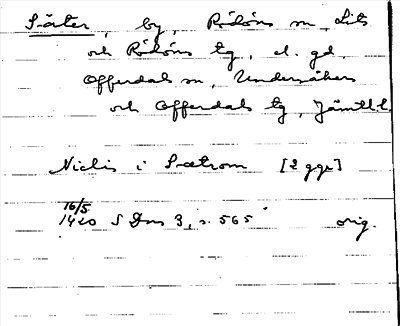 Säter, by, Rödöns sn, Lits
och Rödöns tg, el. gd,
Offerdals sn, Undersåkers
och Offerdals tg, Jämtl. l.
Niclis i Sætrom [2 ggr]
16/5
1420 SDns 3, s. 565 orig.